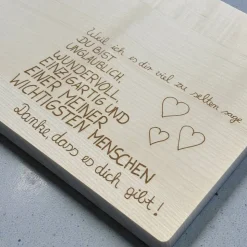 Weil ich es dir viel zu selten sage
DU BIST
UNGLAUBLICH,
WUNDERVOLL,
EINZIGARTIG UND
EINER MEINER
WICHTIGSTEN MENSCHEN
Danke, dass es dich gibt!